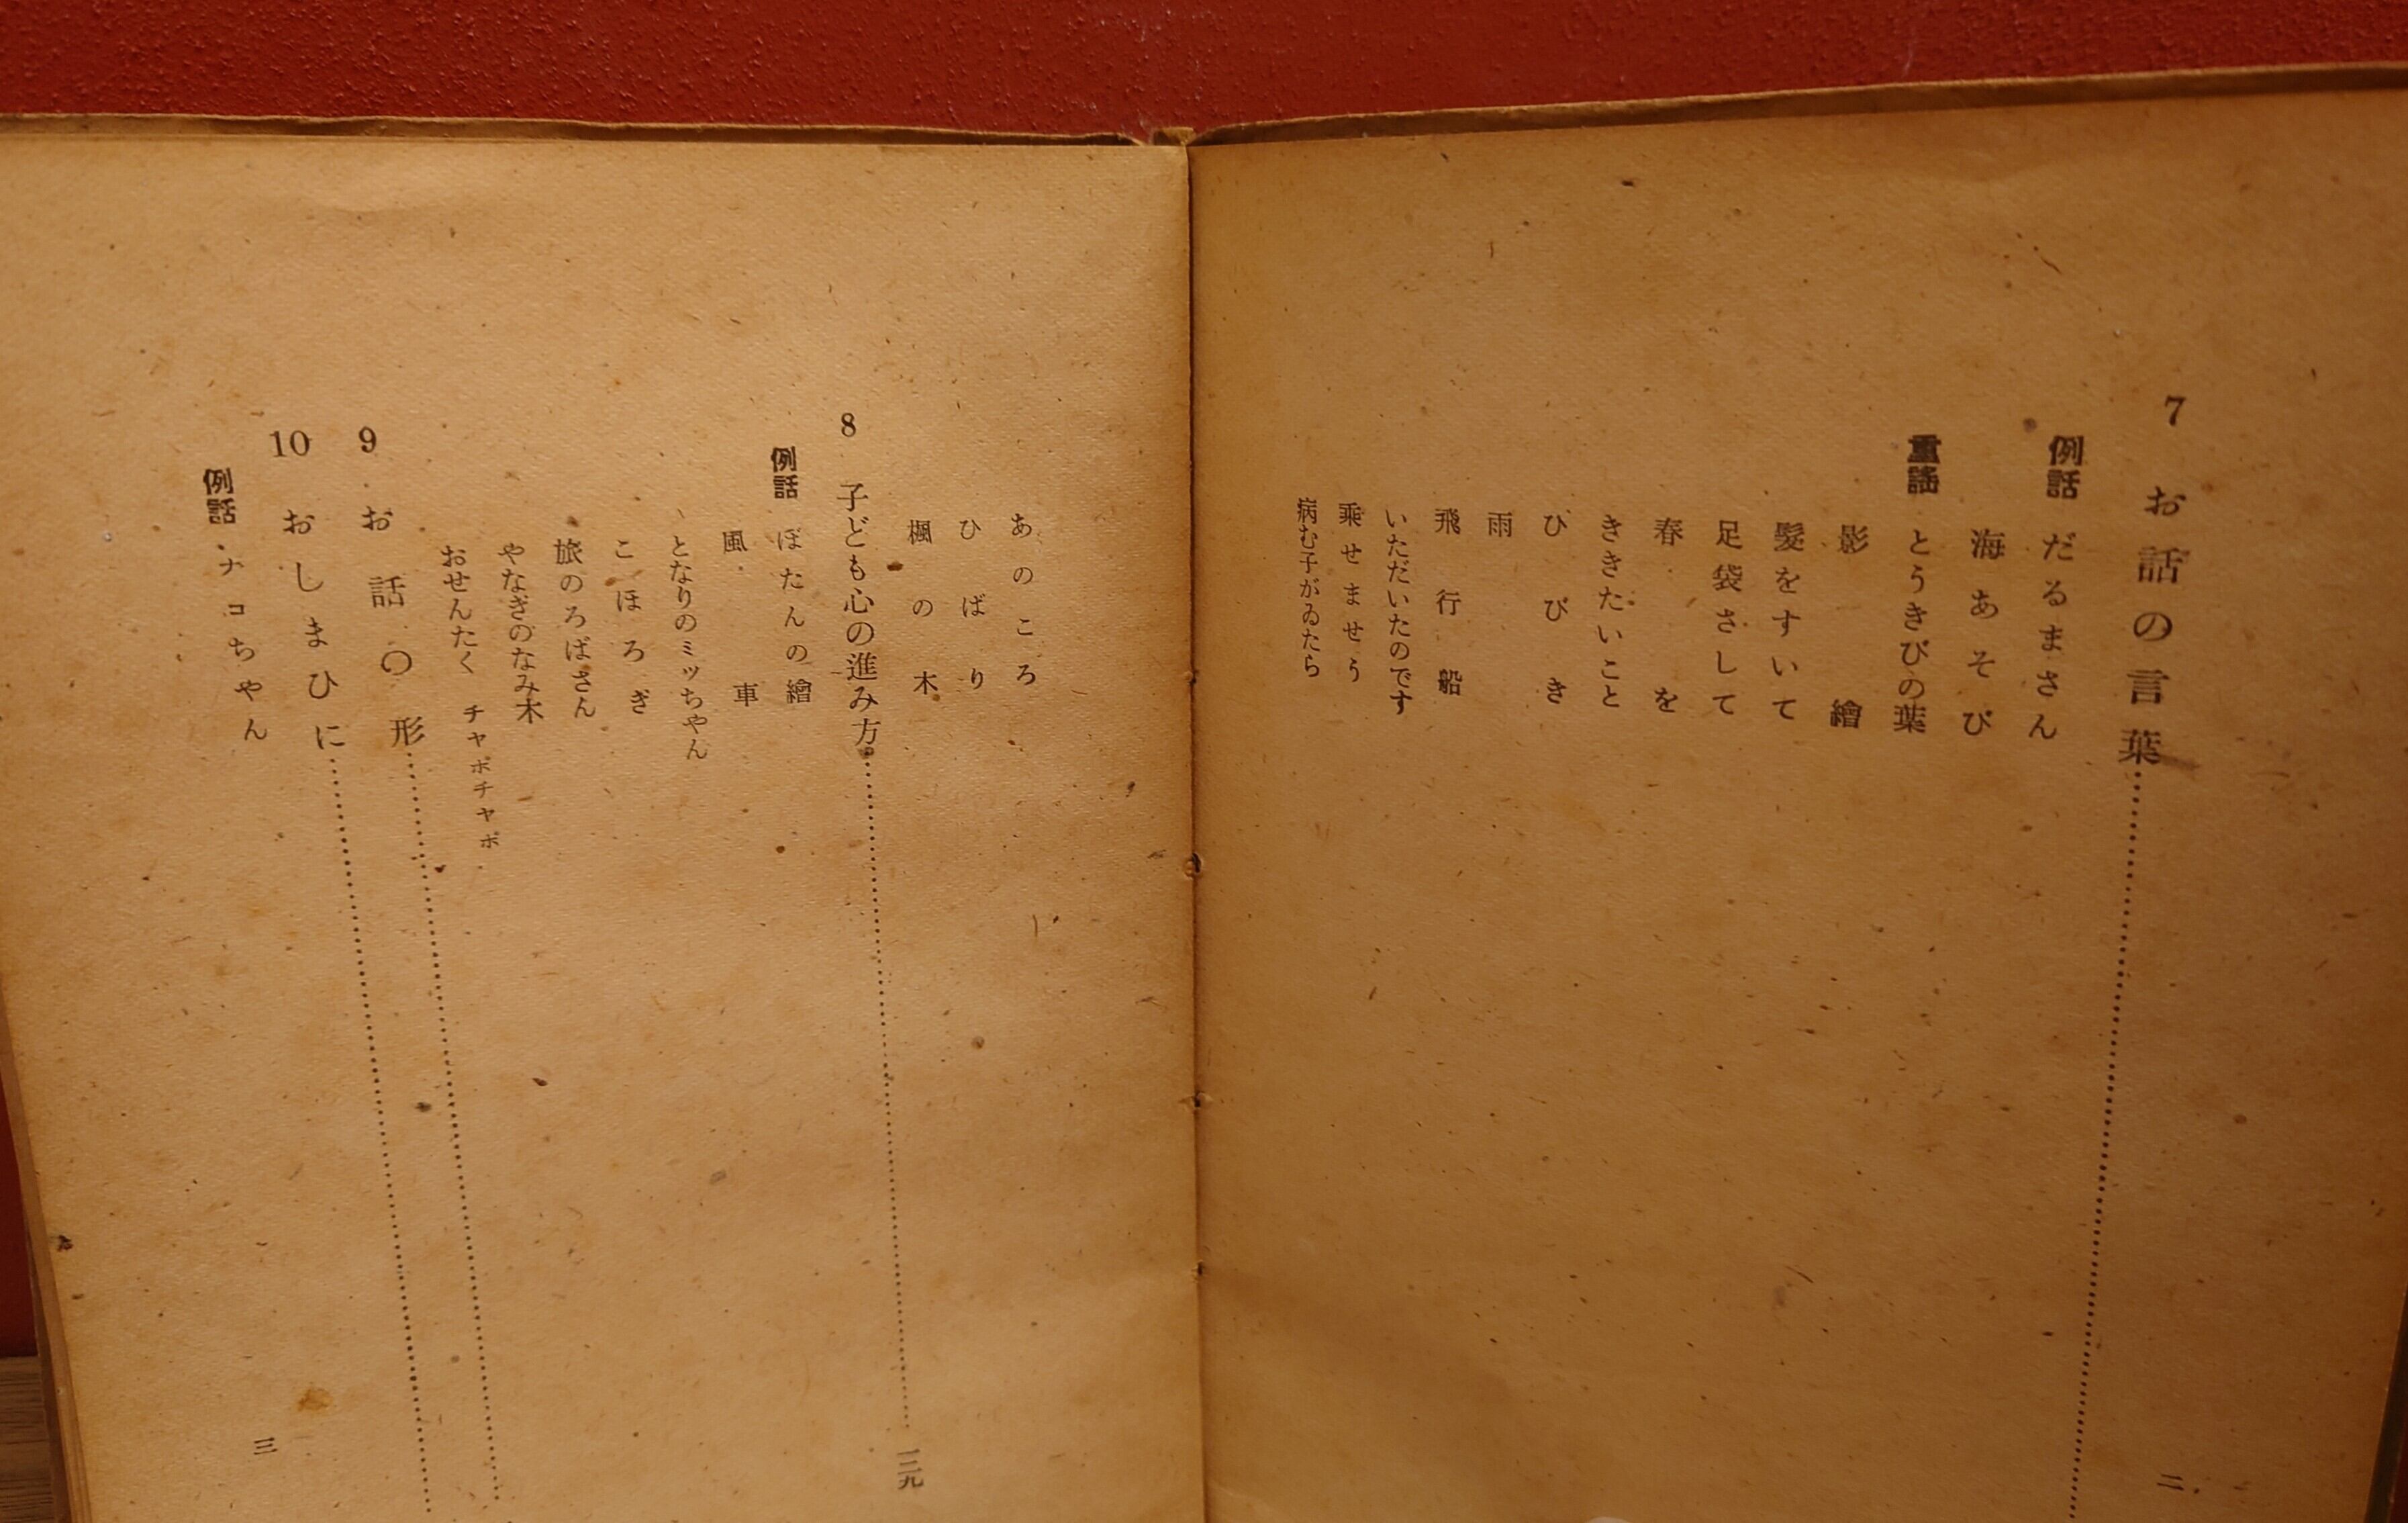 7 お話の言葉
例話 だるまさん
海あそび
童謡 とうきびの葉
影繪
髪をすいて
足袋さして
春を
ききたいこと
ひびき
雨
飛行船
いただいたのです
乘せませう
病む子がゐたら
二
あのころ
ひばり
楓の木
8 子ども心の進み方 一二九
例話 ぼたんの繪
風車
となりのミッちやん
こほろぎ
旅のろばさん
やなぎのなみ木
おせんたく チャポチャポ
9 お話の形
10 おしまひに
例話 ナコちやん
三